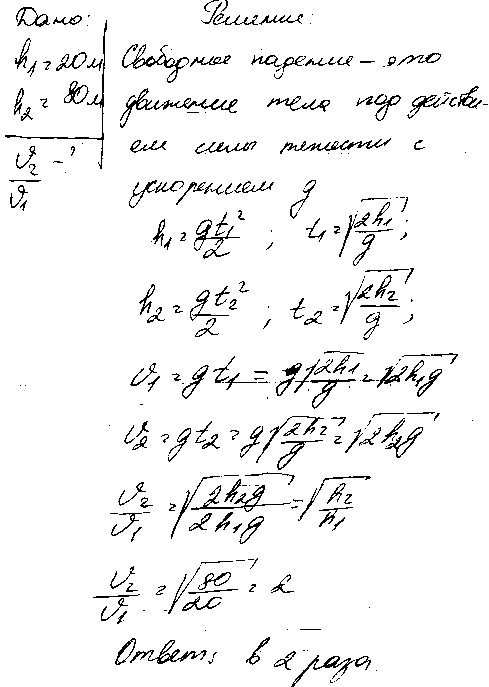 Дано: Решение:
h₁ = 20 м Свободное падение – это
h₂ = 80 м движение тела под действи-
v₂/v₁ – ? ем силы тяжести с
ускорением g
h₁ = gt₁²/2 ; t₁ = √(2h₁/g) ;
h₂ = gt₂²/2 ; t₂ = √(2h₂/g) ;
v₁ = gt₁ = g√(2h₁/g) = √(2h₁g)
v₂ = gt₂ = g√(2h₂/g) = √(2h₂g)
v₂/v₁ = √(2h₂g/2h₁g) = √(h₂/h₁)
v₂/v₁ = √(80/20) = 2
Ответ: в 2 раза.